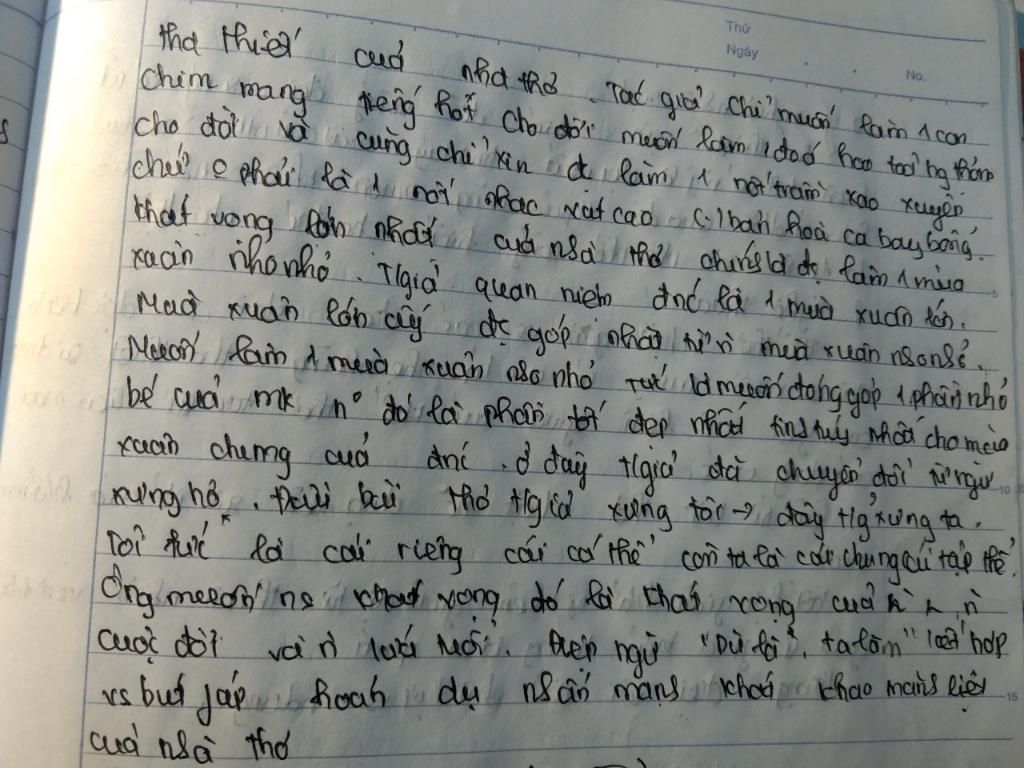 Thứ
Ngày
No.
tha thiết của nhà thơ. Tác giả chỉ muốn làm 1 con
chim mang tiếng hót cho đời muốn làm 1 đoá hoa toả hg thơm
cho đời và cũng chỉ xin đc làm 1 nốt trầm xao xuyến
chứ o phải là 1 nốt nhạc vút cao (-) bản hoà ca bay bổng.
khát vọng lớn nhất của nhà thơ chính là đc làm 1 mùa
xuân nho nhỏ. T/giả quan niệm đnc là 1 mùa xuân lớn.
Mùa xuân lớn ấy đc góp nhặt từ n mùa xuân nho nhỏ.
Muốn làm 1 mùa xuân nho nhỏ tức là muốn đóng góp 1 phần nhỏ
bé của mk n° đó là phần tốt đẹp nhất tinh tuý nhất cho mùa
xuân chung của đnc. ở đây t/giả đã chuyển đổi từ ngữ
xưng hô. Đầu bài thơ t/giả xưng tôi → đây t/g xưng ta.
Tôi tức là cái riêng cái cá thể còn ta là cái chung cái tập thể.
Ông muốn ns khát vọng đó là khát vọng của n
cuộc đời và n lứa tuổi. Điệp ngữ "Dù là", ta làm" kết hợp
vs bút fáp hoán dụ nhấn mạnh khát khao mãnh liệt
của nhà thơ
5
10
15